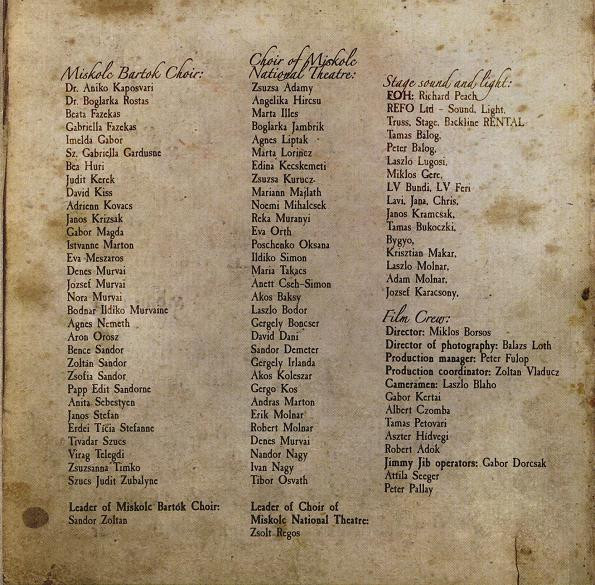 Miskolc Bartok Choir:
Dr. Aniko Kaposvari
Dr. Boglarka Rostas
Beata Fazekas
Gabriella Fazekas
Imelda Gabor
Sz. Gabriella Gardusne
Bea Huri
Judit Kerek
David Kiss
Adrienn Kovacs
Janos Krizsak
Gabor Magda
Istvanne Marton
Eva Meszaros
Denes Murvai
Jozsef Murvai
Nora Murvai
Bodnar Ildiko Murvaine
Agnes Nemeth
Aron Orosz
Bence Sandor
Zoltan Sandor
Zsofia Sandor
Papp Edit Sandorne
Anita Sebestyen
Janos Stefan
Erdei Ticia Stefanne
Tivadar Szucs
Virag Telegdi
Zsuzsanna Timko
Szucs Judit Zubalyne
Leader of Miskolc Bartók Choir:
Sandor Zoltan
Choir of Miskolc
National Theatre:
Zsuzsa Adamy
Angelika Hircsu
Marta Illes
Boglarka Jambrik
Agnes Liptak
Marta Lorincz
Edina Kecskemeti
Zsuzsa Kurucz
Mariann Majlath
Noemi Mihalcsek
Reka Muranyi
Eva Orth
Poschenko Oksana
Ildiko Simon
Maria Takacs
Anett Cseh-Simon
Akos Baksy
Laszlo Bodor
Gergely Boncser
David Dani
Sandor Demeter
Gergely Irlanda
Akos Koleszar
Gergo Kos
Andras Marton
Erik Molnar
Robert Molnar
Denes Murvai
Nandor Nagy
Ivan Nagy
Tibor Osvath
Leader of Choir of
Miskolc National Theatre:
Zsolt Regos
Stage sound and light:
FOH: Richard Peach
REFO Ltd - Sound, Light,
Truss, Stage, Backline RENTAL
Tamas Balog,
Peter Balog,
Laszlo Lugosi,
Miklos Gere,
LV Bundi, LV Feri
Lavi, Jana, Chris,
Janos Kramcsak,
Tamas Bukoczki,
Bygyo,
Krisztian Makar,
Laszlo Molnar,
Adam Molnar,
Jozsef Karacsony,
Film Crew:
Director: Miklos Borsos
Director of photography: Balazs Loth
Production manager: Peter Fulop
Production coordinator: Zoltan Vladucz
Cameramen: Laszlo Blaho
Gabor Kertai
Albert Czomba
Tamas Petovari
Aszter Hidvegi
Robert Adok
Jimmy Jib operators: Gabor Dorcsak
Attila Seeger
Peter Pallay